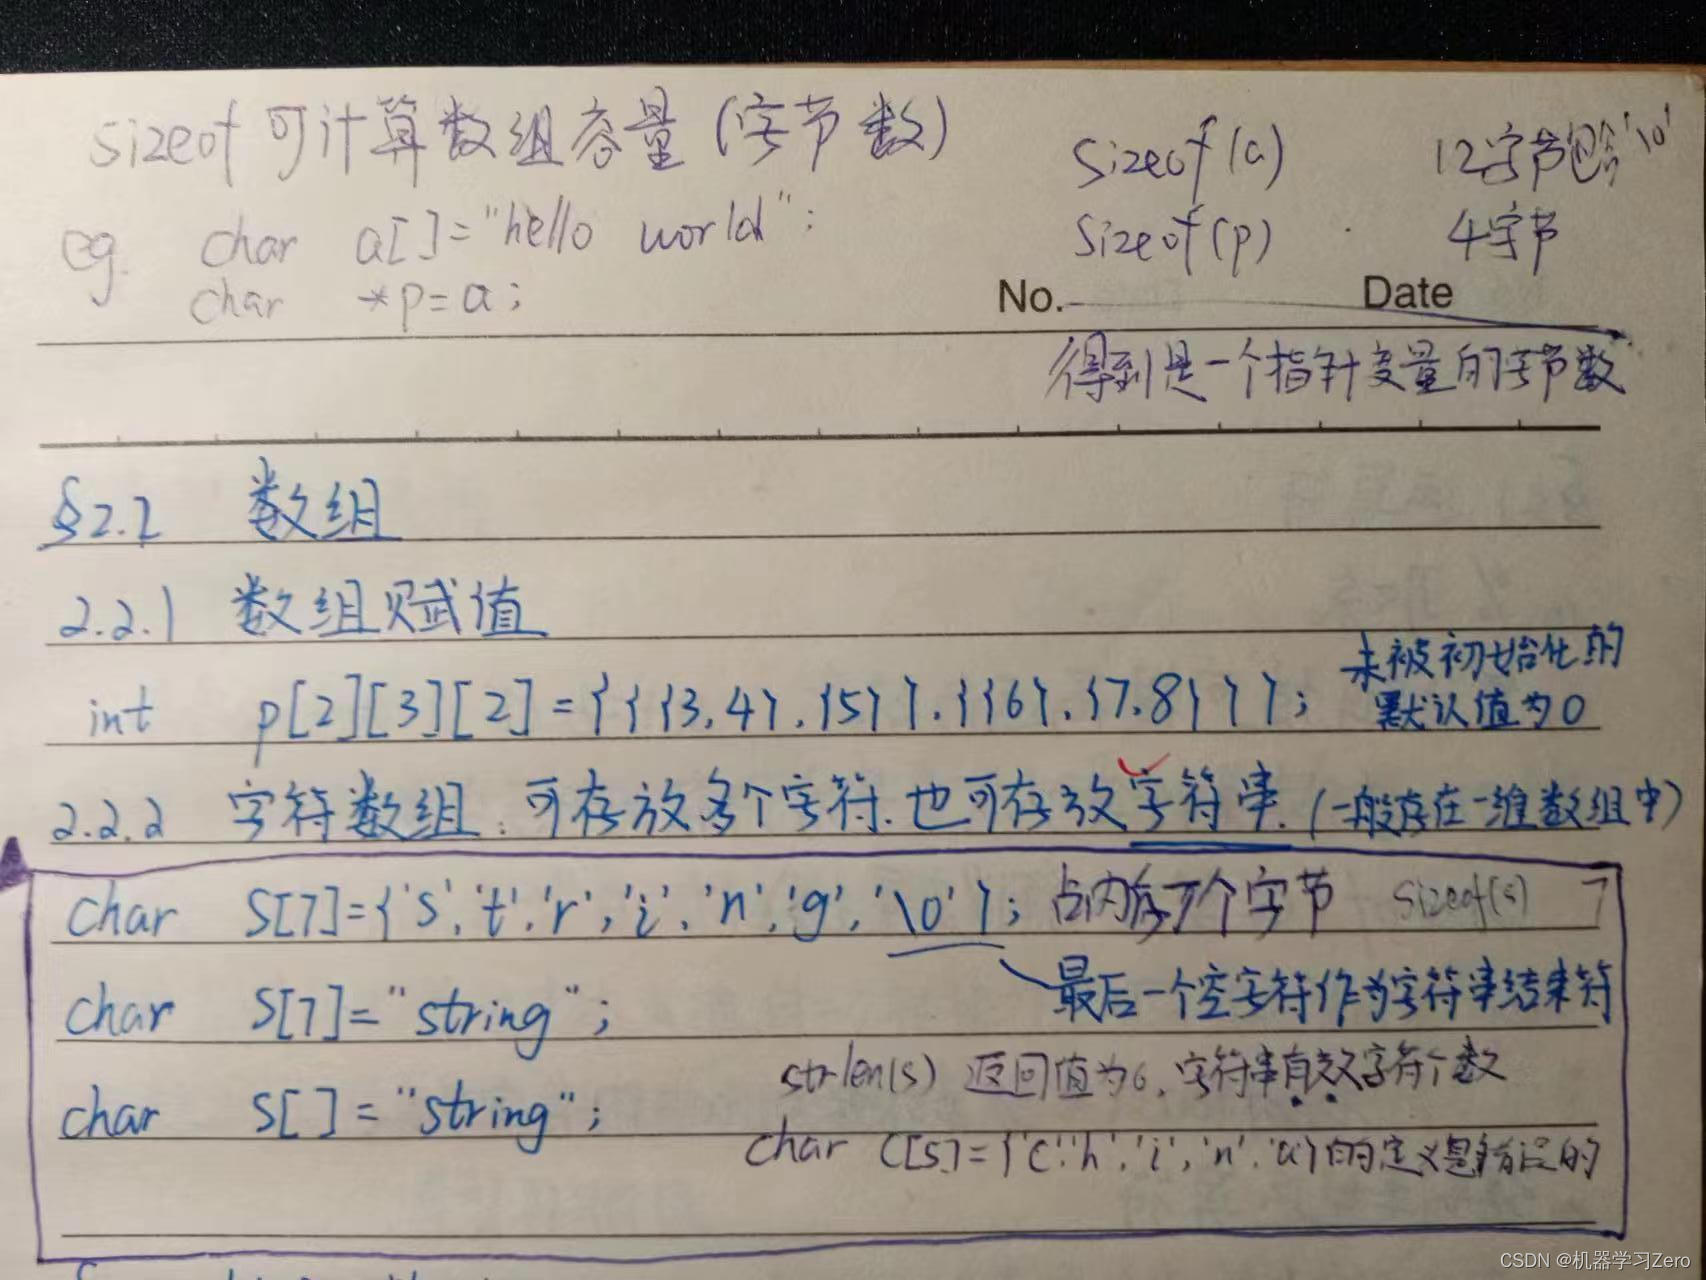 sizeof 可计算数组容量(字节数)
sizeof(a) 12字节包含'\0'
eg. char a[]="hello world";
sizeof(p) 4字节
char *p=a;
No. Date
得到是一个指针变量的字节数
§2.2 数组
2.2.1 数组赋值
未被初始化的
int p[2][3][2]={{{3,4},{5}},{{6},{7,8}}};
默认值为0
2.2.2 字符数组:可存放多个字符.也可存放字符串.(一般存在一维数组中)
char S[7]={'s','t','r','i','n','g','\0'}; 占内存7个字节 sizeof(s) 7
char S[7]="string";
最后一个空字符作为字符串结束符
strlen(s) 返回值为6,字符串有效字符个数
char S[ ]="string";
char C[5]={'c','h','i','n','a'}的定义是错误的
CSDN @机器学习Zero